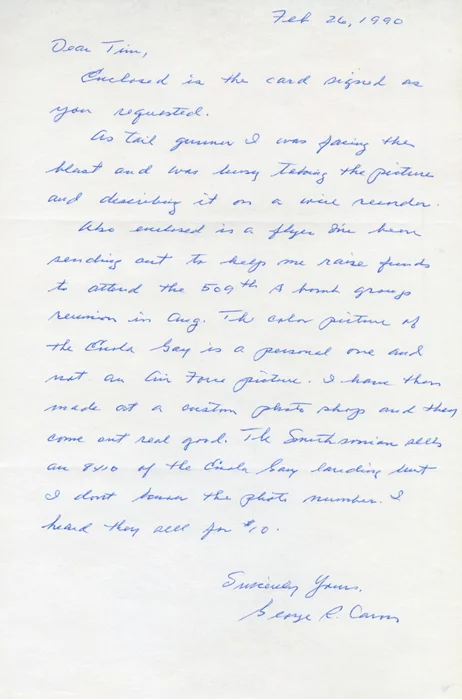 Feb 26, 1990
Dear Tim,
Enclosed is the card signed as
you requested.
As tail gunner I was facing the
blast and was busy taking the picture
and describing it on a wire recorder.
Also enclosed is a flyer I've been
sending out to help me raise funds
to attend the 509th A bomb groups
reunion in Aug. The color picture of
the Enola Gay is a personal one and
not an Air Force picture. I have them
made at a custom photo shop and they
come out real good. The Smithsonian sells
an 8x10 of the Enola Gay landing but
I dont know the photo number. I
heard they sell for $10.
Sincerely Yours,
George R. Caron